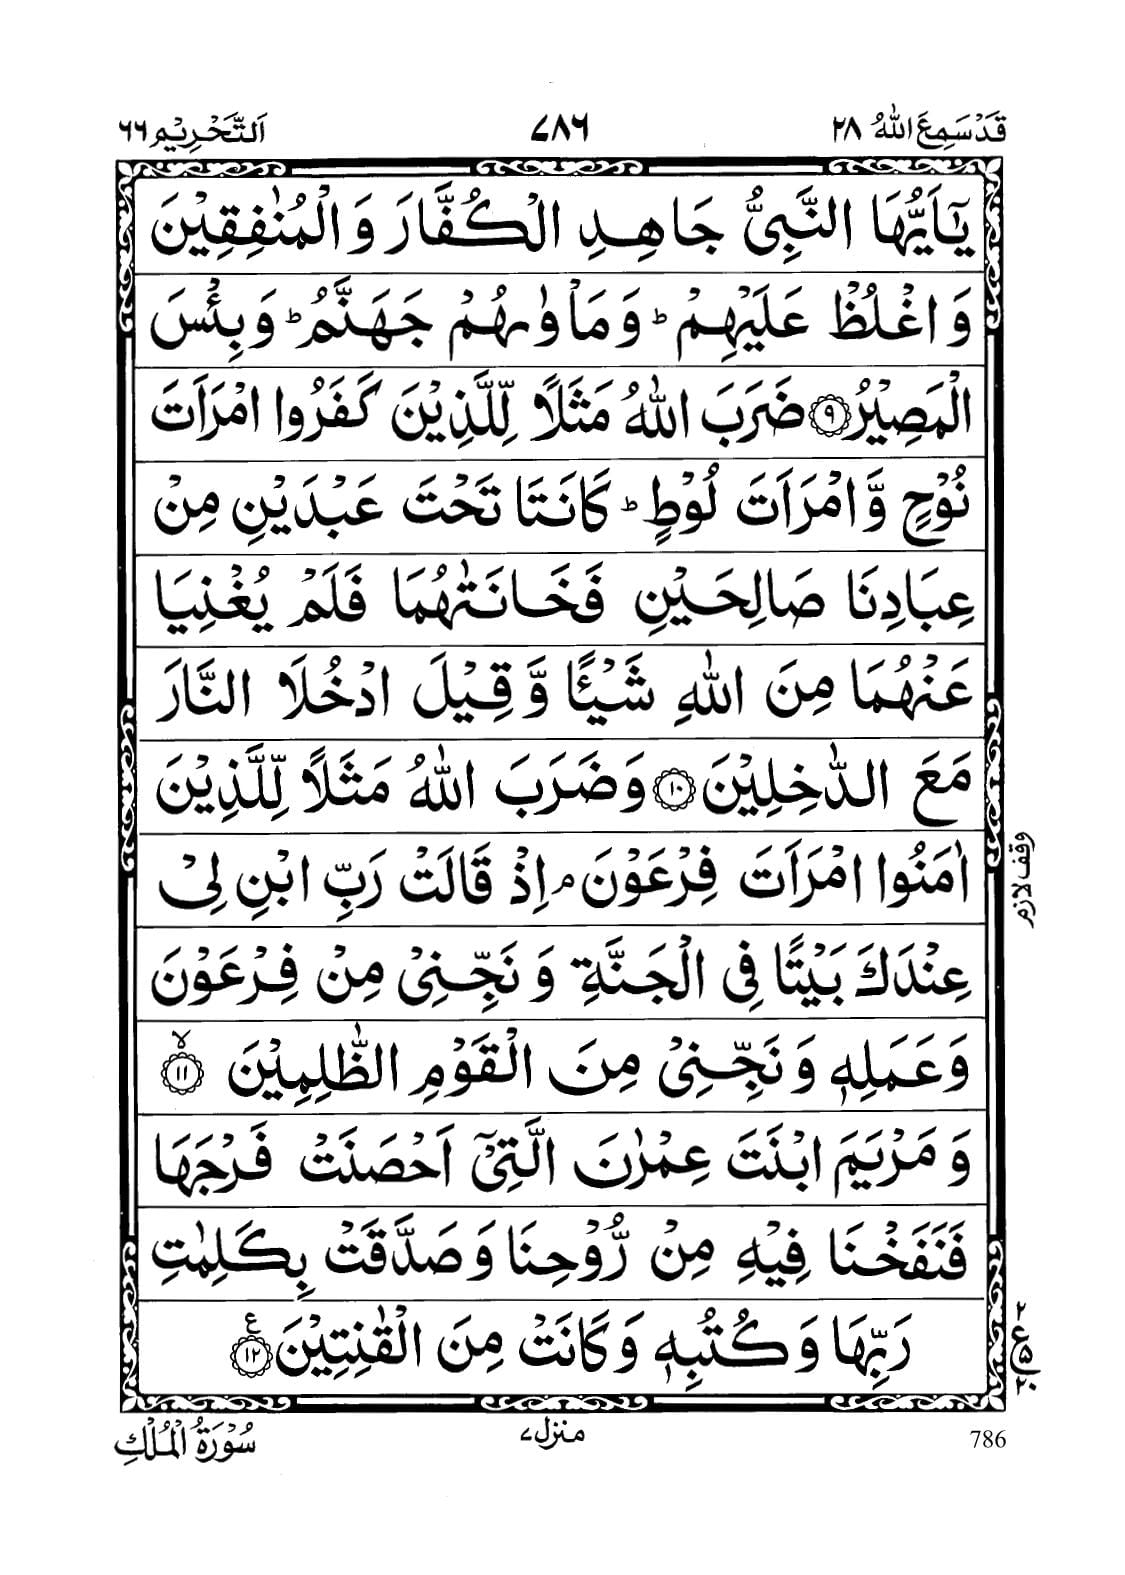 قَدْ سَمِعَ اللّٰهُ ۲۸
۷۸۶
اَلتَّحْرِيْم ۶۶
يٰۤاَيُّهَا النَّبِىُّ جَاهِدِ الْكُفَّارَ وَالْمُنٰفِقِيْنَ
وَاغْلُظْ عَلَيْهِمْ ؕ وَمَاْوٰىهُمْ جَهَنَّمُ ؕ وَبِئْسَ
الْمَصِيْرُ ۹ ضَرَبَ اللّٰهُ مَثَلًا لِّلَّذِيْنَ كَفَرُوا امْرَاَتَ
نُوْحٍ وَّامْرَاَتَ لُوْطٍ ؕ كَانَتَا تَحْتَ عَبْدَيْنِ مِنْ
عِبَادِنَا صَالِحَيْنِ فَخَانَتٰهُمَا فَلَمْ يُغْنِيَا
عَنْهُمَا مِنَ اللّٰهِ شَيْـًٔا وَّقِيْلَ ادْخُلَا النَّارَ
مَعَ الدّٰخِلِيْنَ ۱۰ وَضَرَبَ اللّٰهُ مَثَلًا لِّلَّذِيْنَ
اٰمَنُوا امْرَاَتَ فِرْعَوْنَ ۘ اِذْ قَالَتْ رَبِّ ابْنِ لِىْ
وقف لازم
عِنْدَكَ بَيْتًا فِى الْجَنَّةِ وَنَجِّنِىْ مِنْ فِرْعَوْنَ
وَعَمَلِهٖ وَنَجِّنِىْ مِنَ الْقَوْمِ الظّٰلِمِيْنَ ۙ ۱۱
وَمَرْيَمَ ابْنَتَ عِمْرٰنَ الَّتِىْۤ اَحْصَنَتْ فَرْجَهَا
فَنَفَخْنَا فِيْهِ مِنْ رُّوْحِنَا وَصَدَّقَتْ بِكَلِمٰتِ
رَبِّهَا وَكُتُبِهٖ وَكَانَتْ مِنَ الْقٰنِتِيْنَ ۱۲ ع
۲
ع
۵
۲۰
786
منزل ۷
سُوْرَةُ الْمُلْكِ